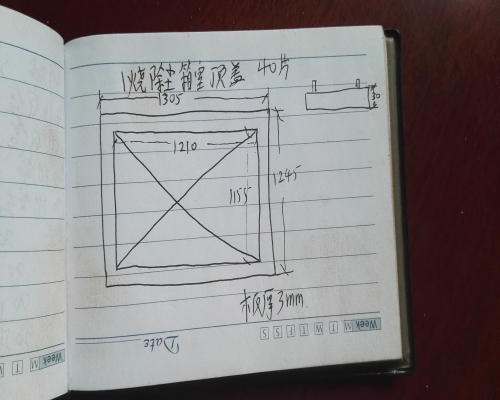 1烧除尘箱室顶盖 40片
1305
30
1210
1245
1155
板厚3mm
Week M T W T F S S
Date
Week M T W